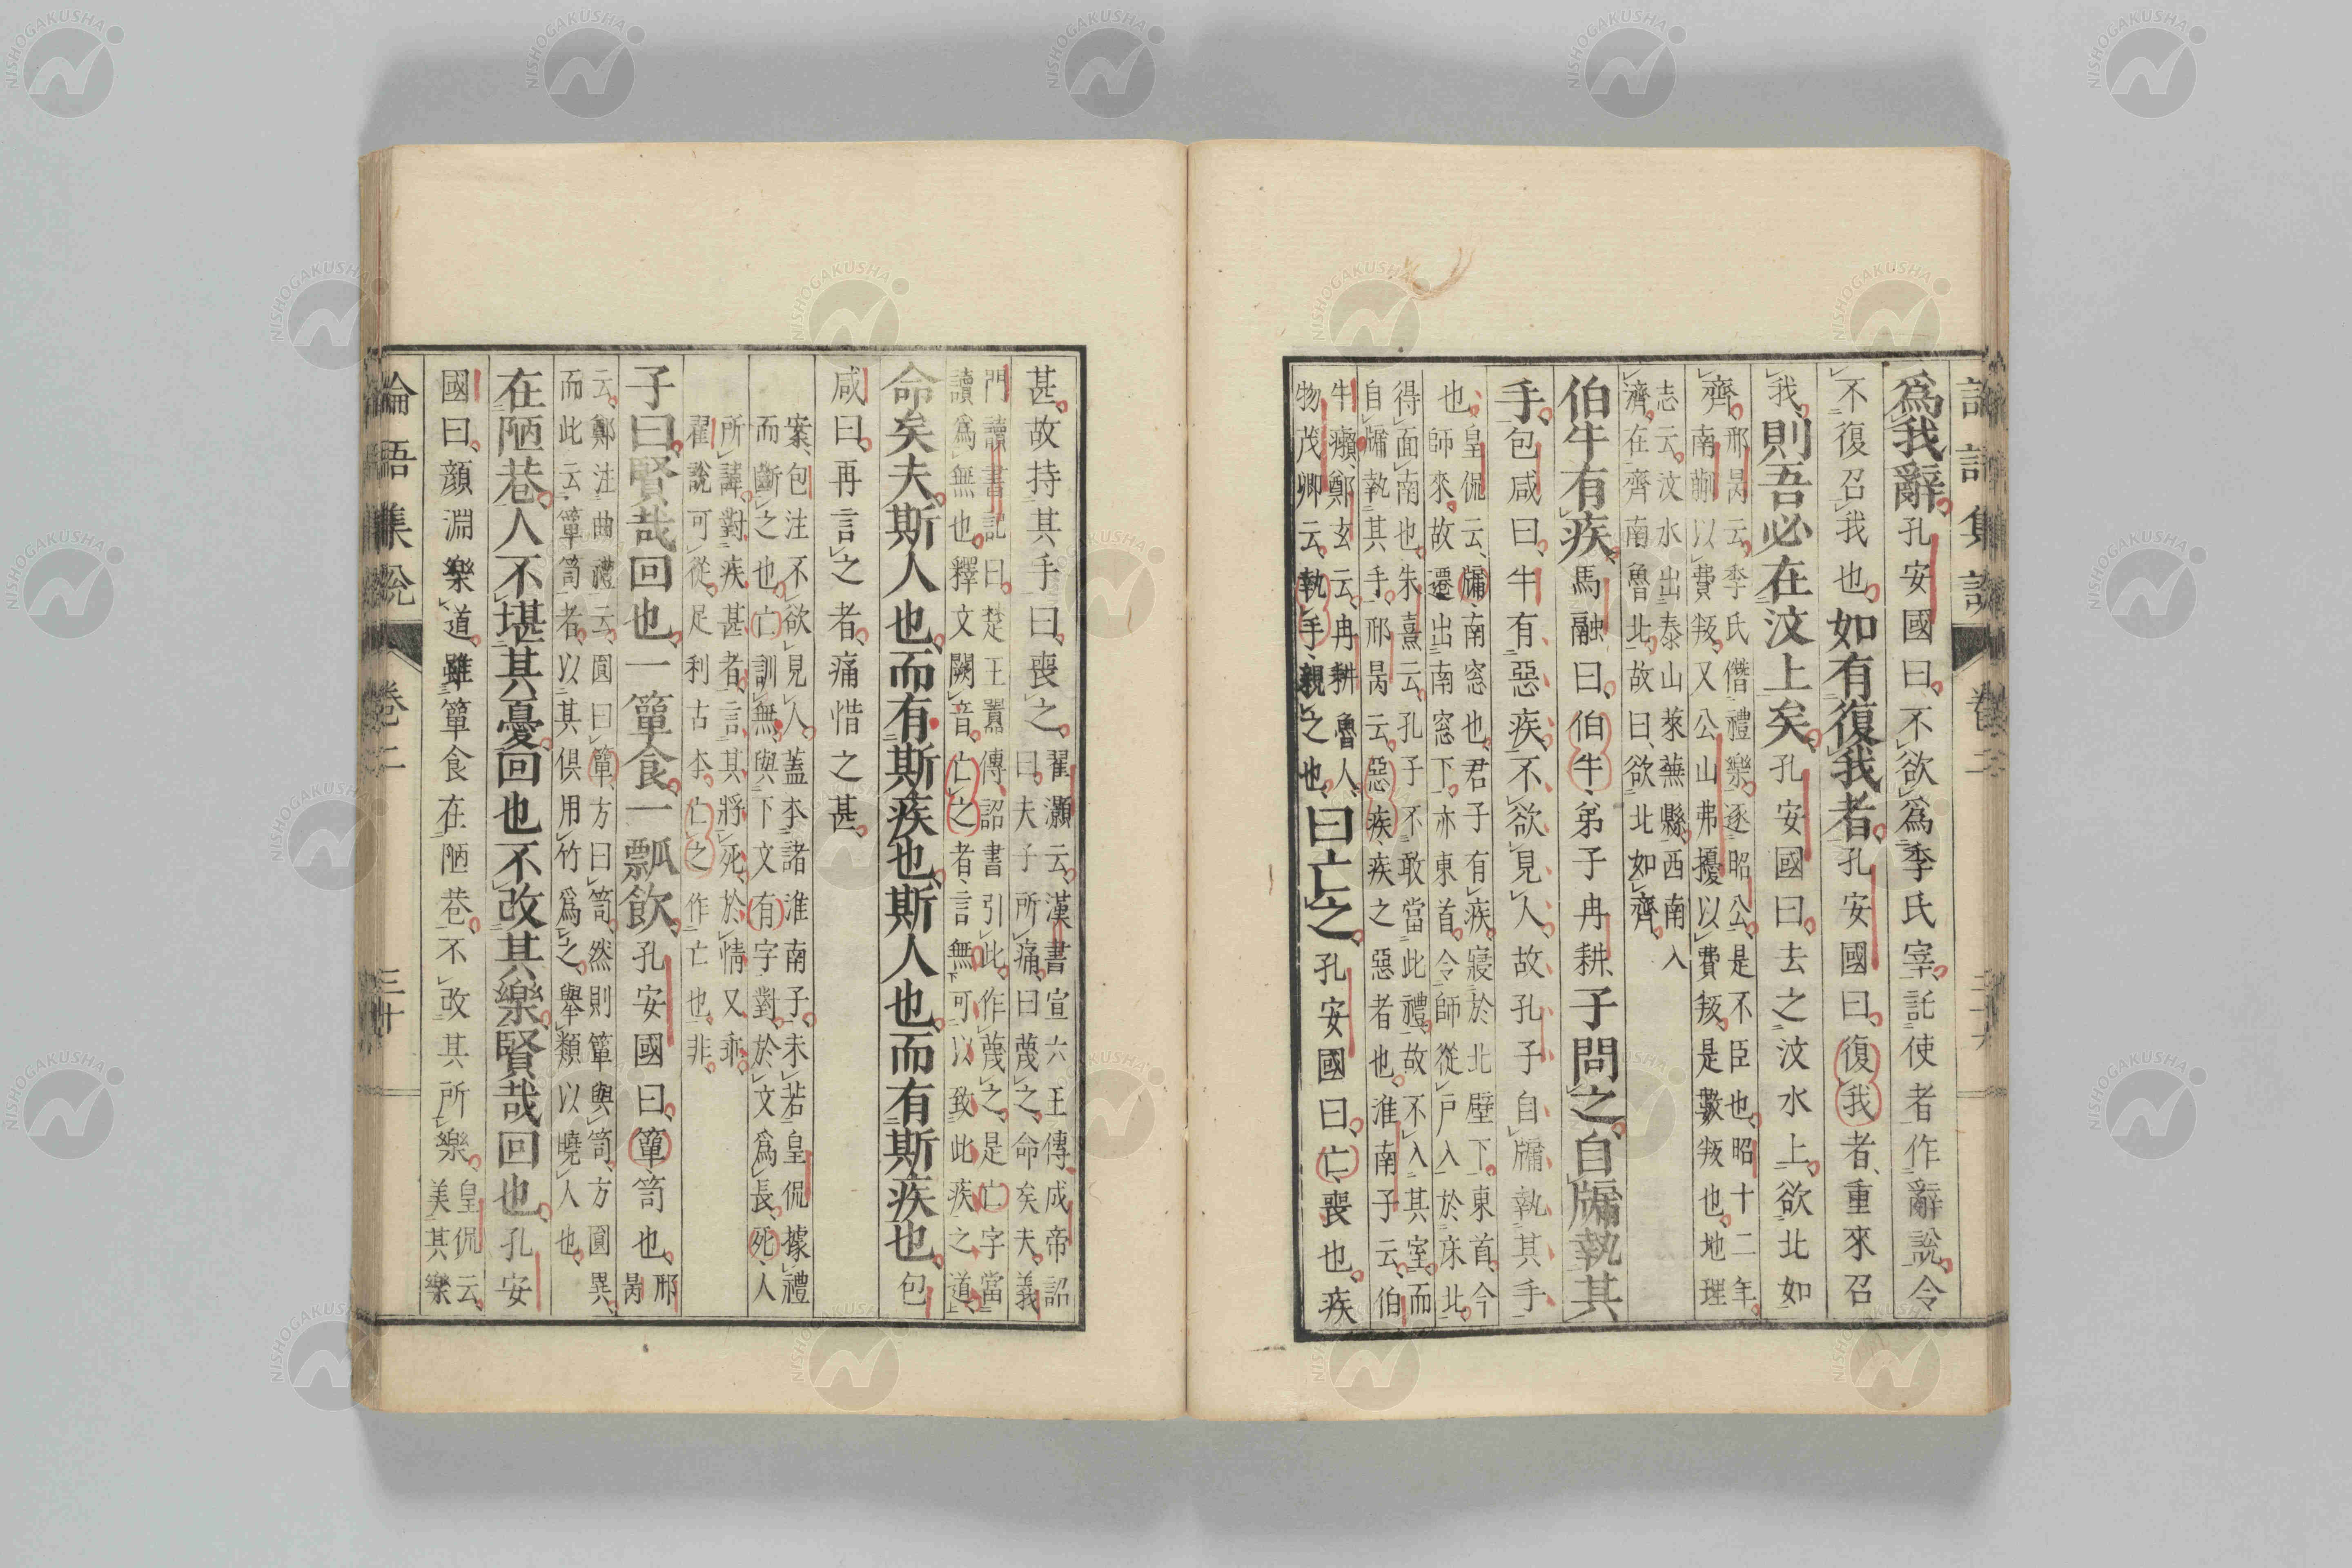 爲我辭。孔安國曰。不欲爲季氏宰。託使者作辭說。令
不復召我也。如有復我者。孔安國曰。復我者、重來召
我、則吾必在汶上矣。孔安國曰。去之汶水上。欲北如
齊。邢昺云、季氏僭禮樂。逐昭公。是不臣也。昭十二年。
南蒯以費叛。又公山弗擾以費叛。是數叛也。地理
志云。汶水出泰山萊蕪縣。西南入
濟。在齊南魯北。故曰、欲北如齊。
伯牛有疾。馬融曰。伯牛、弟子冉耕。子問之。自牖執其
手。包咸曰、牛有惡疾、不欲見人、故孔子自牖執其手
也。皇侃云、牖、南窓也。君子有疾、寢於北壁下。東首。今
師來。故遷出南窓下。亦東首。令師從戶入於床北。
得面南也。朱熹云。孔子不敢當此禮。故不入其室。而
自牖執其手。邢昺云。惡疾、疾之惡者也。淮南子云、伯
牛癩、鄭玄云。冉耕魯人、
物茂卿云、執手、親之也。曰亡之。孔安國曰。亡、喪也。疾
甚。故持其手曰、喪之。翟灝云、漢書宣六王傳、成帝詔
曰。夫子所痛。曰蔑之、命矣夫。義
門讀書記曰。楚王囂傳、詔書引此。作蔑之、是亡字當
讀爲無也。釋文闕音。亡之者、言無可以致此疾之道。
命矣夫。斯人也。而有斯疾也。斯人也。而有斯疾也。包
咸曰。再言之者。痛惜之甚。
案、包注不欲見人。蓋本諸淮南子。未若皇侃據禮
而斷之也。亡訓無。與下文有字對。於文爲長。死、人
所諱。對疾甚者。言其將死、於情又乖。
翟說可從。足利古本。亡之作亡也、非。
子曰。賢哉回也。一簞食。一瓢飲。孔安國曰。簞、笥也。邢
昺
云。鄭注曲禮云、圓曰簞、方曰笥。然則簞與笥、方圓異。
而此云簞笥者。以其俱用竹爲之。舉類以曉人也。
在陋巷。人不堪其憂。回也不改其樂。賢哉回也。孔安
國曰。顏淵樂道。雖簞食在陋巷。不改其所樂。皇侃云。
美其樂
論語集說 卷二 三十